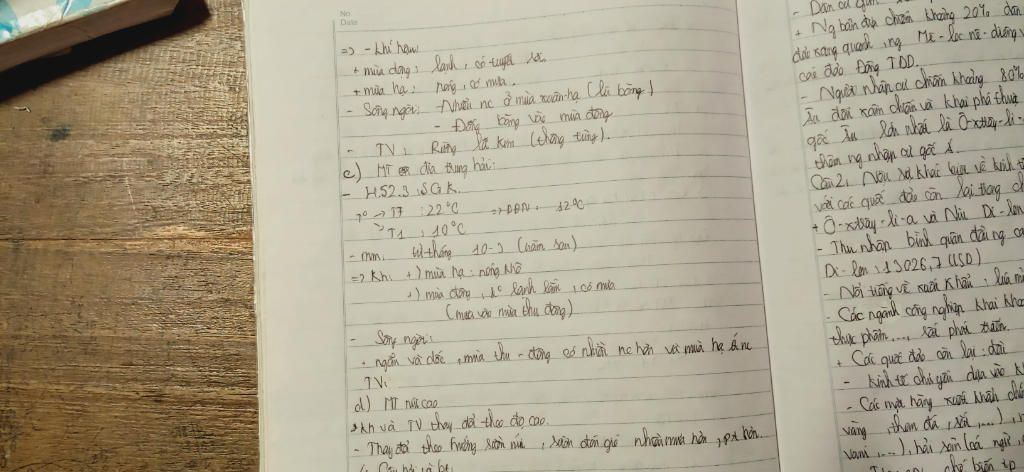 No
Date
=> - khí hậu
+ mùa đông : lạnh , có tuyết
+ mùa hạ : nóng , có mưa .
- Sông ngòi : - Nhiều nc ở mùa xuân-hạ (lũ băng)
- Đóng băng vào mùa đông
- TV : Rừng lá kim (thông tùng).
c) MT địa trung hải :
- H52.3 SGK.
T° -> T7 : 22°C => : 12°C
-> T1 : 10°C
- mm : từ tháng 10-3 (năm sau)
=> Kh : +) mùa hạ : nóng khô
+) mùa đông , t° lạnh lắm , có mưa
(mưa vào mùa thu đông)
- Sông ngòi :
+ ngắn và dốc , mùa thu - đông có nhiều nc hơn và mùa hạ ít nc
TV :
d) MT núi cao
KH và TV thay đổi theo độ cao.
- Thay đổi theo hướng sườn núi , sườn đón gió nhiều mưa hơn , pt hơn.
- Dân cư gồm
+ Ng bản địa chiếm khoảng 20% dân
đảo xung quanh , ng Mê-lac nê-diêng
các đảo Đông TBD.
- Người nhập cư chiếm khoảng 80%
Âu đến xâm chiếm và khai phá thuộc
gốc Âu lớn nhất là Ô-xtrây-li-
thêm ng nhập cư gốc Á.
Câu 2: Nêu sự khác biệt về kinh tế
với các quốc đảo còn lại trong
+ Ô-xtrây-li-a và Niu Di-len
- Thu nhập bình quân đầu ng
Di-len : 13026,7 USD)
- Nổi tiếng về xuất khẩu : lúa mì
- Các ngành công nghiệp khai
thực phẩm..., rất phát triển.
+ Các quốc đảo còn lại : đều
- Kinh tế chủ yếu dựa vào
- Các mặt hàng xuất khẩu
vàng , than đá , sắt ,...)
vani ,...), hải sản (cá ngừ